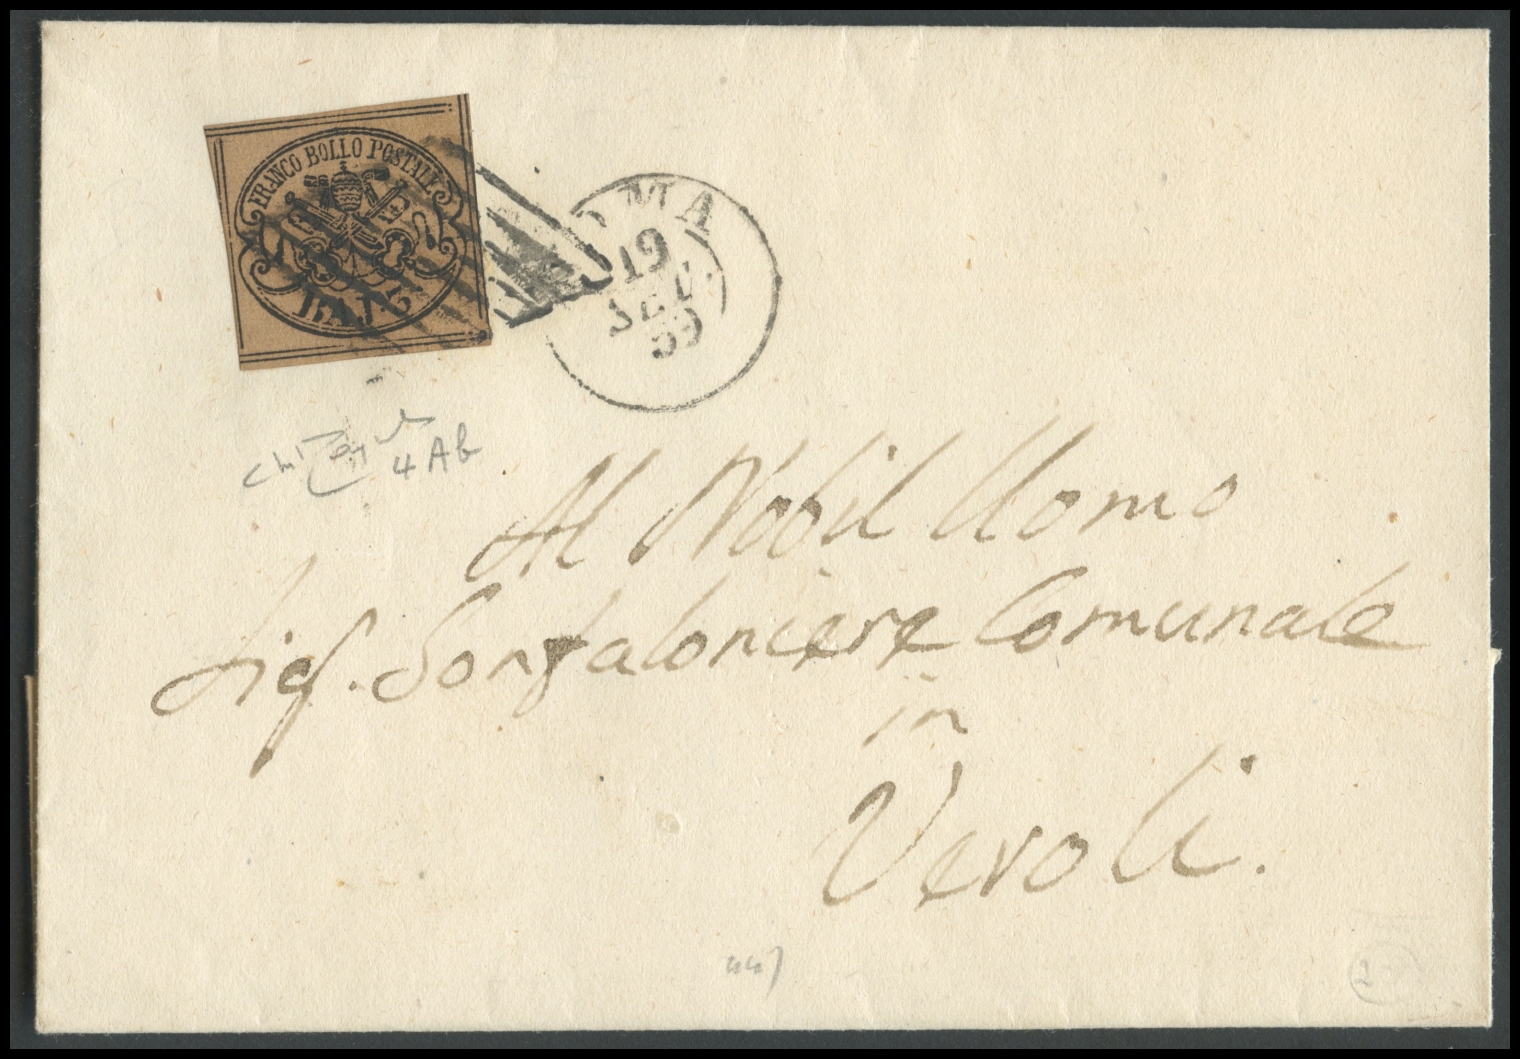 FRANCO BOLLO POSTALE
BAJ. 3
ROMA
19
SET.
59
4 Ab
Al Nobil Uomo
Sig. Gonfaloniere Comunale
in
Veroli.